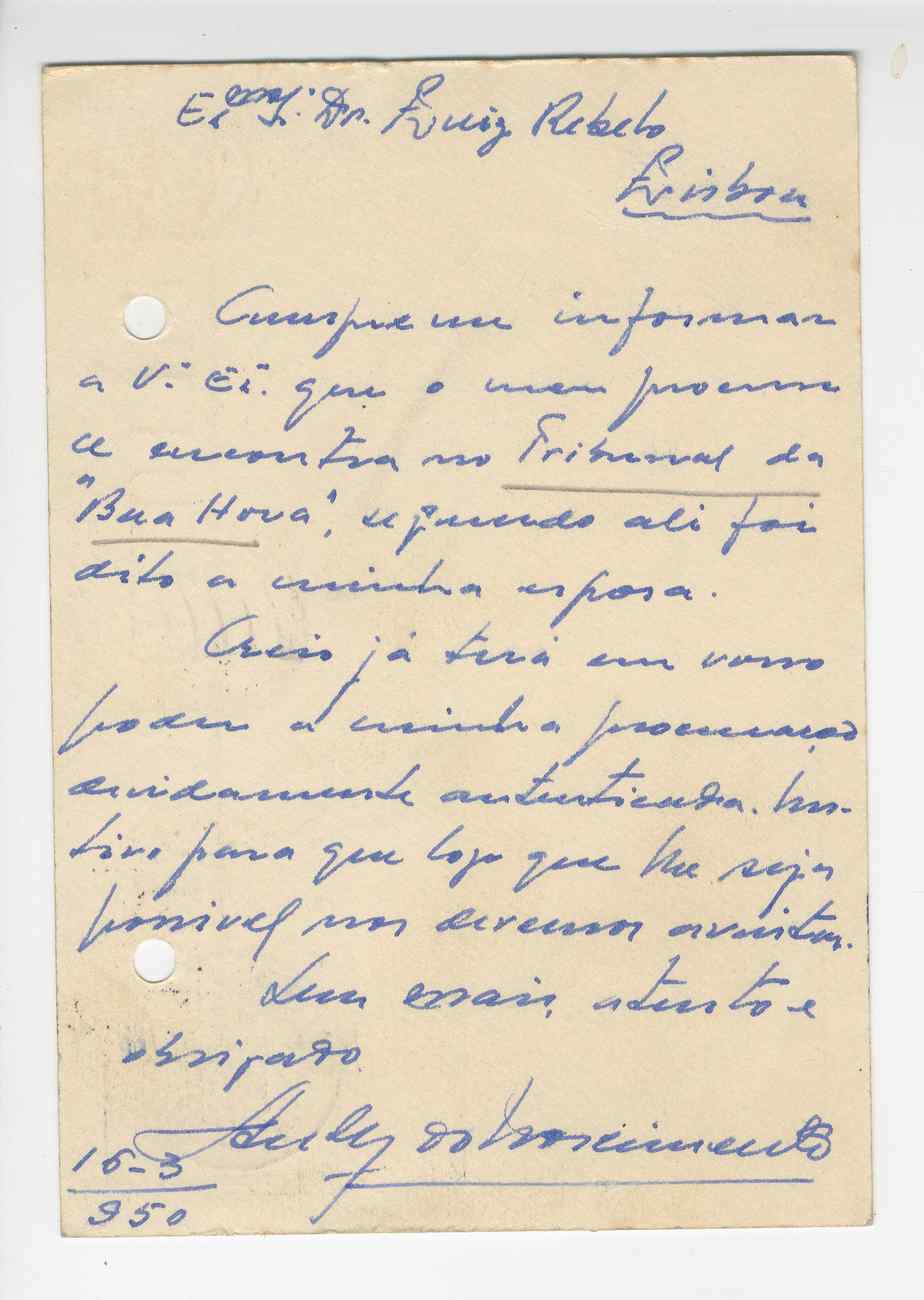 Exmo. Sr. Dr. Luiz Rebelo
Lisboa
Cumpre me informar
a V.ª Ex.ª que o meu processo
se encontra no Tribunal da
"Boa Hora", segundo ali foi
dito a minha esposa.
Creio já terá em vosso
poder a minha procuração
devidamente autenticada. Mo-
tivo para que logo que lhe seja
possivel nos devemos avistar.
Sem mais, atento e
obrigado
do Nascimento
16-3
950